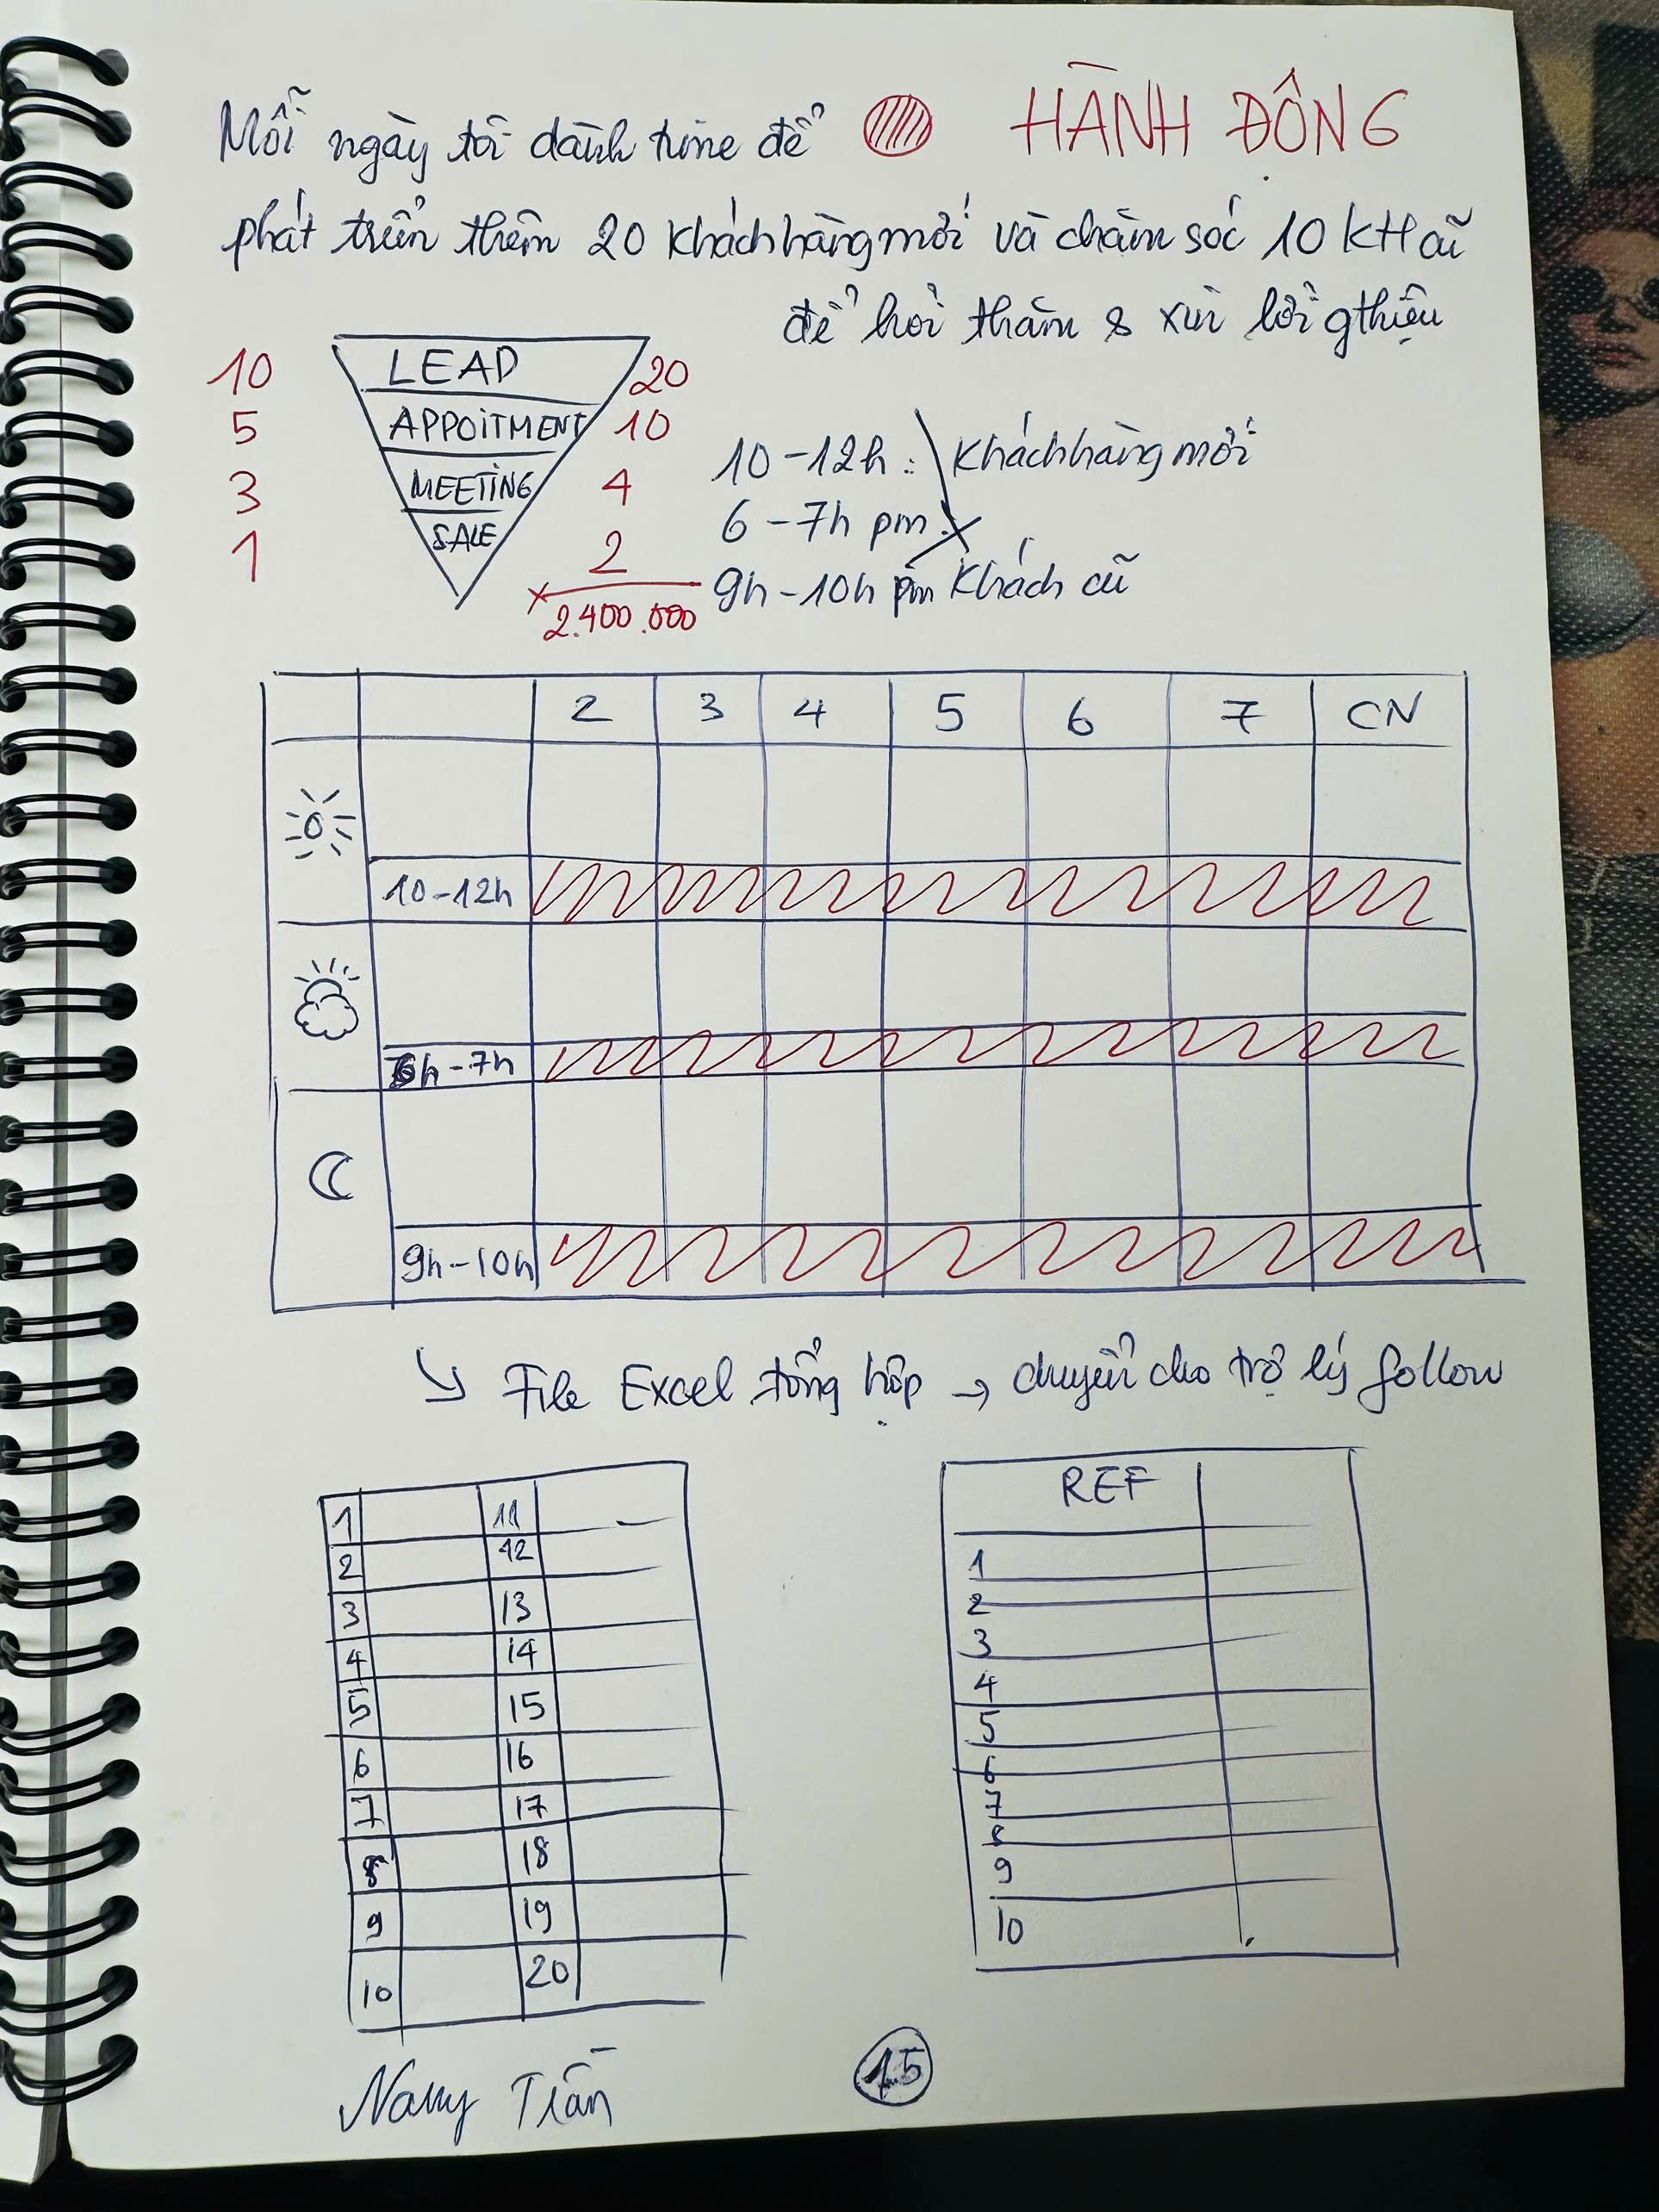 HÀNH ĐỘNG
Mỗi ngày tôi dành time để
phát triển thêm 20 khách hàng mới và chăm sóc 10 KH cũ
để hỏi thăm & xin lời gthiệu
10 LEAD 20
5 APPOITMENT 10
3 MEETING 4
1 SALE 2
x 2.400.000
10-12h: Khách hàng mới
6-7h pm:
9h-10h pm Khách cũ
2 3 4 5 6 7 CN
10-12h
6h-7h
9h-10h
↳ File Excel tổng hợp → chuyển cho trợ lý follow
1 11
2 12
3 13
4 14
5 15
6 16
7 17
8 18
9 19
10 20
REF
1
2
3
4
5
6
7
8
9
10
Trần
15